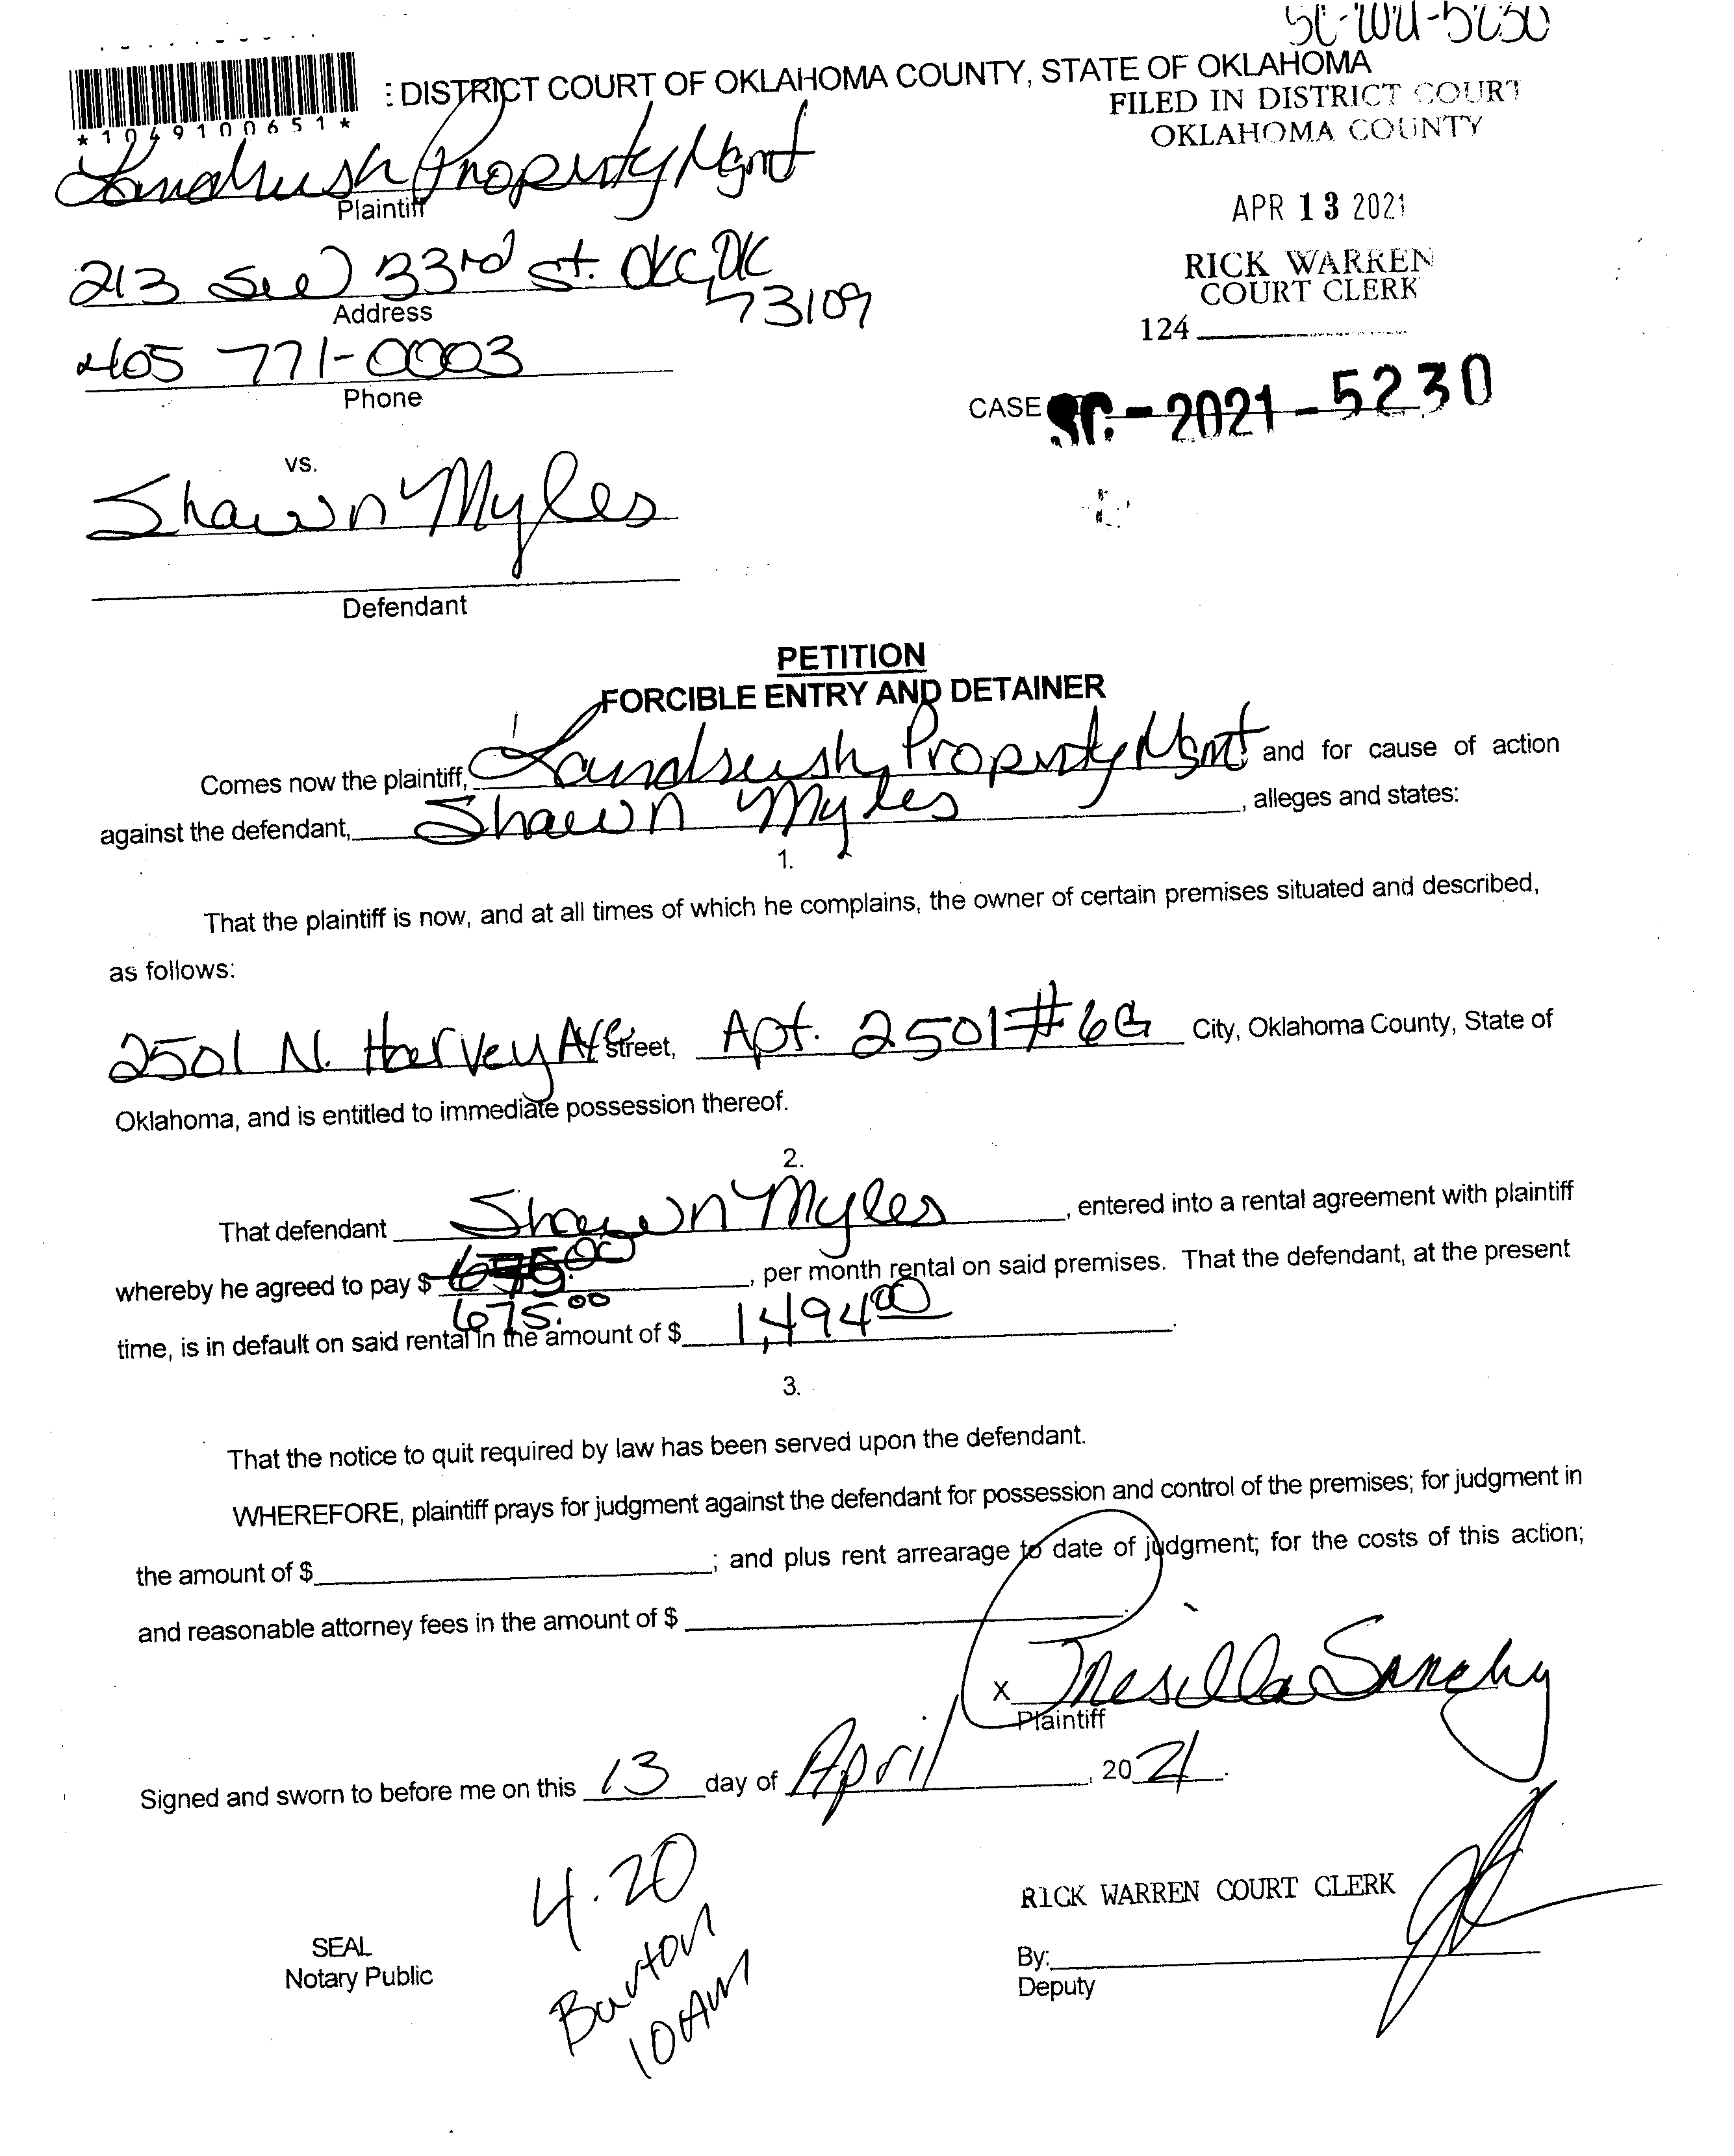 SC-2021-5230
: DISTRICT COURT OF OKLAHOMA COUNTY, STATE OF OKLAHOMA
FILED IN DISTRICT COURT
OKLAHOMA COUNTY
*1049100651*
Landrush Property Mgmt
Plaintiff
APR 13 2021
213 SW 33rd st. OKC, OK
73109
Address
RICK WARREN
COURT CLERK
124
405 771-0003
Phone
CASE SC-2021-5230
vs.
Shawn Myles
Defendant
PETITION
FORCIBLE ENTRY AND DETAINER
Comes now the plaintiff, Landrush Property Mgmt and for cause of action
against the defendant, Shawn Myles, alleges and states:
1.
That the plaintiff is now, and at all times of which he complains, the owner of certain premises situated and described,
as follows:
2501 N. Harvey Ave Street, Apt. 2501 #6G City, Oklahoma County, State of
Oklahoma, and is entitled to immediate possession thereof.
2.
That defendant Shawn Myles, entered into a rental agreement with plaintiff
whereby he agreed to pay $ 675.00, per month rental on said premises. That the defendant, at the present
time, is in default on said rental in the amount of $ 1,494.00.
3.
That the notice to quit required by law has been served upon the defendant.
WHEREFORE, plaintiff prays for judgment against the defendant for possession and control of the premises; for judgment in
the amount of $; and plus rent arrearage to date of judgment; for the costs of this action;
and reasonable attorney fees in the amount of $.
x Presilla Sanchez
Plaintiff
Signed and sworn to before me on this 13 day of April, 2021.
4.20
Burton
10 AM
RICK WARREN COURT CLERK
SEAL
Notary Public
By:
Deputy